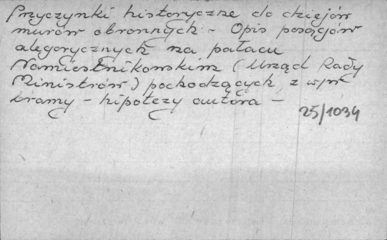 Przyczynki historyczne do dziejów
murów obronnych - Opis posągów
alegorycznych na pałacu
Namiestnikowskim (Urząd Rady
Ministrów) pochodzących z w/w
bramy - hipotezy autora -
25/1034